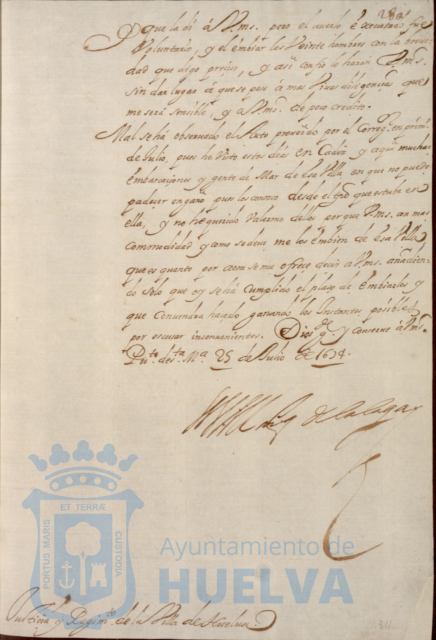 que la di à Vms. pero el averlo executado fue
Voluntario, y el embiar los Veinte hombres con la breve
dad que digo preciso, y asi confio lo haran Vms.
sin dar lugar à que se pase à mas diligencia que
me sera sensible, y a Vms. de poco credito.
Mal se hà observado el proveido por el Correg.
de Julio, pues he Visto estos dias en Cadiz y aqui muchas
Embarcaciones y gente de Mar de esa Villa en que no puedo
padecer engaño pues los conozco desde el tpo que estube en
ella, y no he querido Valerme de los porque Vms. an mas
commodidad y me los Embien de esa Villa
que es quanto por aora se me ofrece decir à Vms. añadien
do solo que oy se hà Cumplido el plazo de Embiarlos y
que Convendra hazerlo ganando los Instantes posibles
por escusar inconvenientes. Dios g. y conserve à Vms
Pu. de S.ta M.a 25 de Julio de 1674.
de la
Justicia y Regim.to de la Villa de Huelva.
PORTUS MARIS
ET TERRÆ
CUSTODIA
Ayuntamiento de
HUELVA